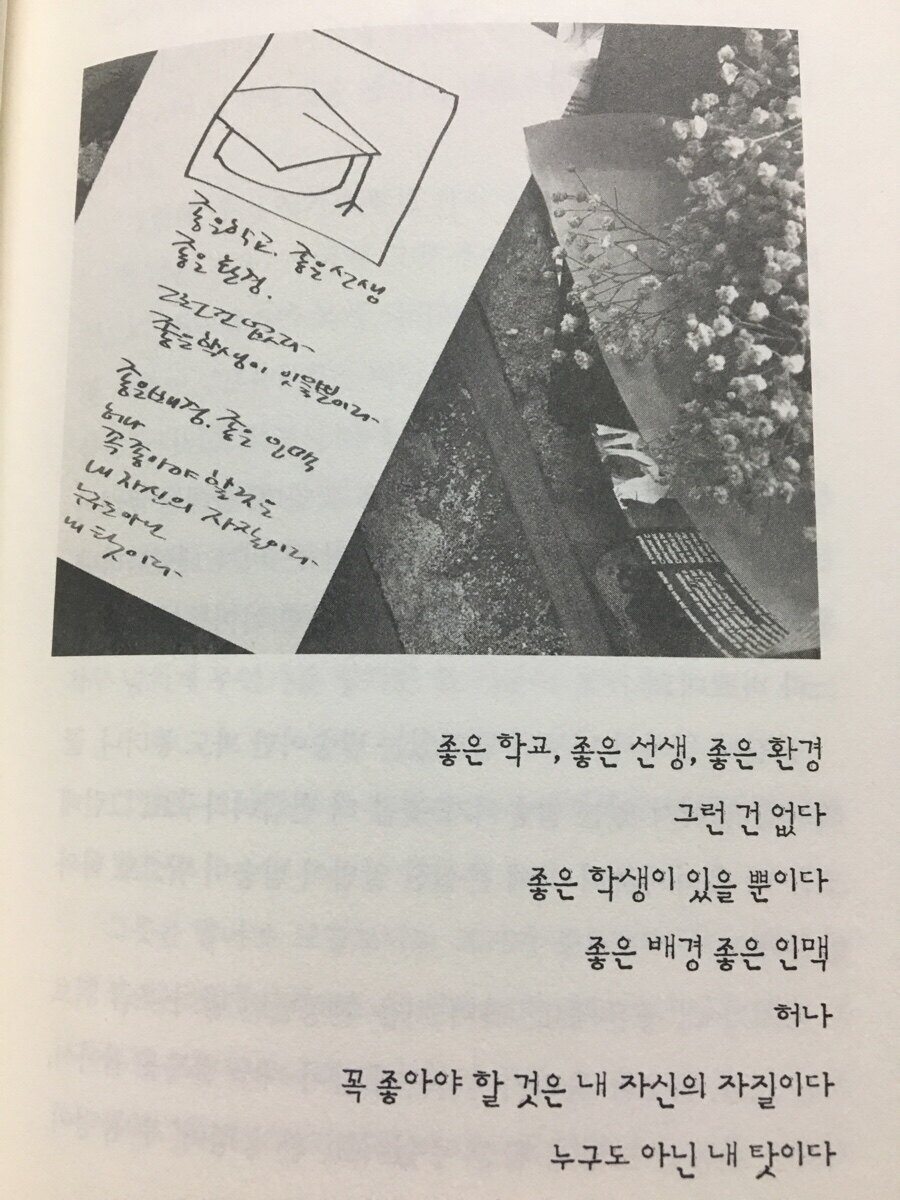 좋은학교. 좋은선생
좋은 환경.
그런건 없다
좋은학생이 있을뿐이다
좋은배경. 좋은 인맥
허나
꼭 좋아야 할것은
내 자신의 자질이다
누구도 아닌
내 탓이다
좋은 학교, 좋은 선생, 좋은 환경
그런 건 없다
좋은 학생이 있을 뿐이다
좋은 배경 좋은 인맥
허나
꼭 좋아야 할 것은 내 자신의 자질이다
누구도 아닌 내 탓이다